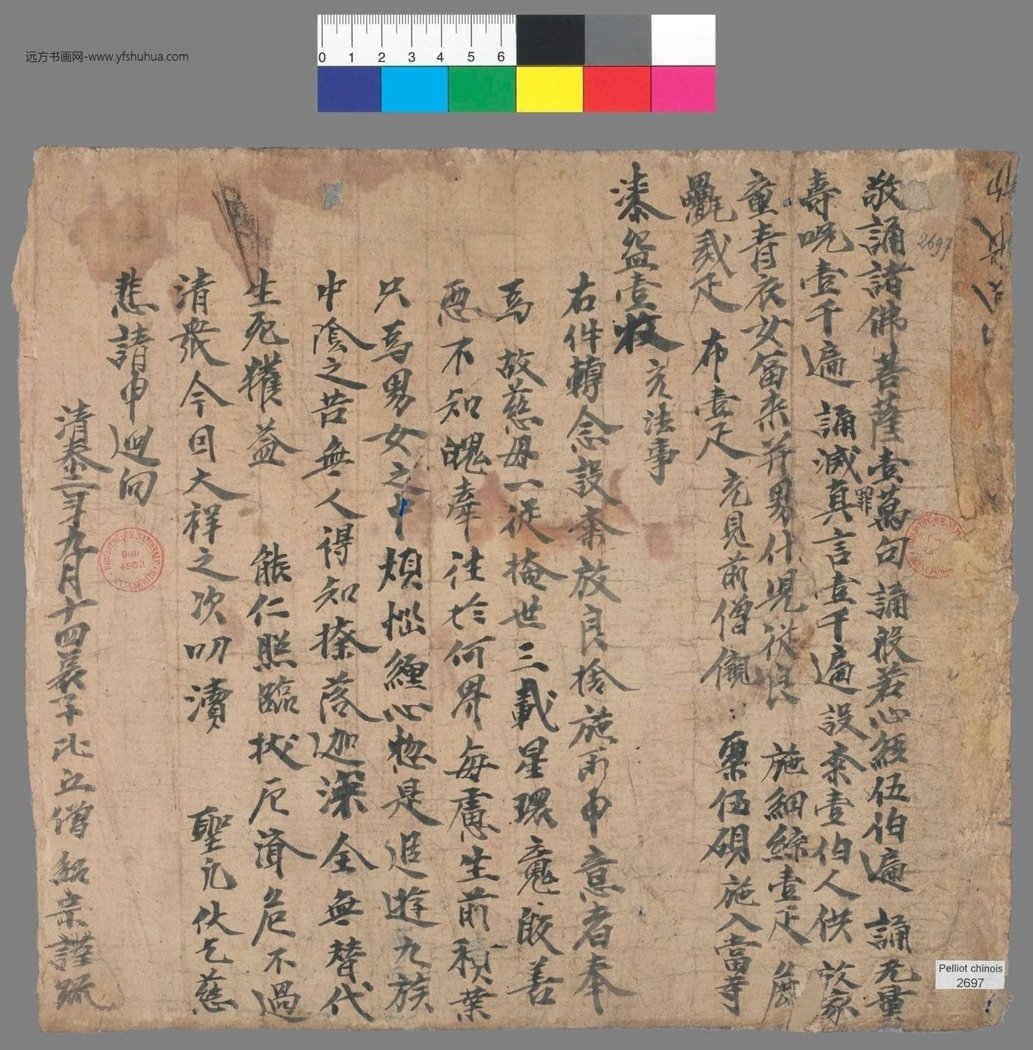 远方书画网-www.yfshuhua.com
0 1 2 3 4 5 6
敬誦諸佛菩薩壹萬句 誦般若心經伍伯遍 誦无量
壽呪壹千遍 誦滅罪真言壹千遍 設齋壹伯人供 放家
童青衣女富來并男什兒從良 施細緤壹疋 麁
㲲貳疋 布壹疋 充見前僧儭 粟伍碩 施入當寺
漆盌壹枚 充法事
右件轉念設齋放良捨施所申意者奉
爲 故慈母一從掩世三載星環魂皎善
惡不知魄牽往於何界每慮生前積業
只爲男女之中煩惱纏心惣是追遊九族
中陰之苦無人得知捺落迦深全無替代
生死獲益 能仁照臨拔厄濟危不過
清衆今因大祥之次叨瀆 聖凡伏乞慈
悲請申迴向
清泰二年九月十四哀子比丘僧 紹宗謹疏
2697
Pelliot chinois
2697